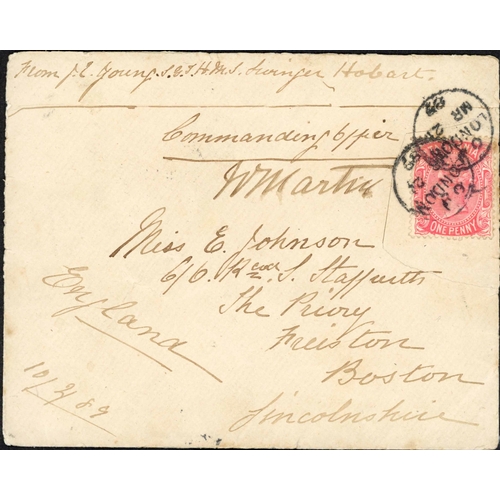 From J. E. Young. S. & T. H.M.S. Swinger Hobart.
Commanding Officer
W Martin
Miss E. Johnson
c/o. Revd. S. Staffurth
The Priory
Freiston
Boston
Lincolnshire
England
10/2/89
LONDON
MR
LONDON
ONE PENNY